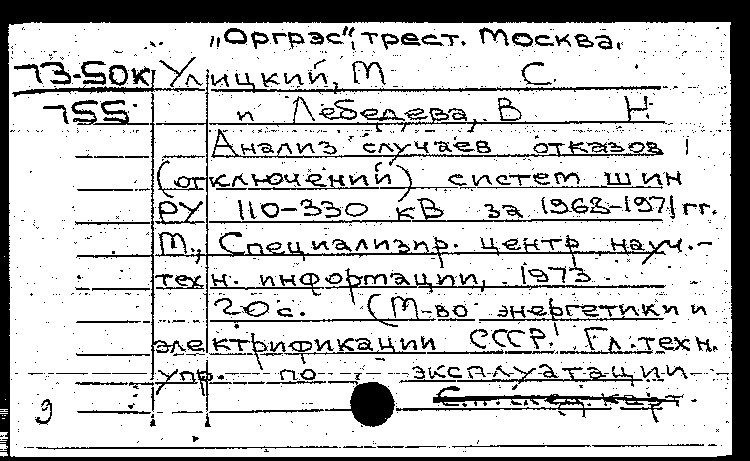 „Оргрэс“, трест. Москва.
73-50к Улицкий, М С.
755 и Лебедева, В Н.
Анализ случаев отказов
(отключений) систем шин
РУ 110-330 кВ за 1968-1971 гг.
М., Специализир. центр науч.-
техн. информации, 1973
20 с. (М-во энергетики и
электрификации СССР. Гл. техн.
упр. по эксплуатации
9